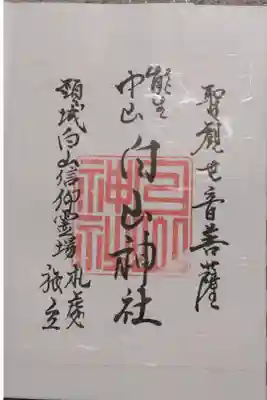 聖観世音菩薩
能生
中山
白山神社
白山神社
頸城白山信仰霊場